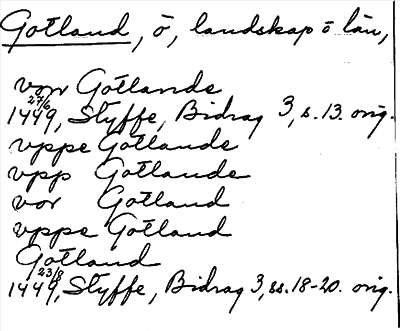 Gotland, ö, landskap o län,
vor Gotlande
27/6 1449, Styffe, Bidrag 3, s. 13. orig.
vppe Gotlande
vpp Gotlande
vor Gotland
vppe Gotland
Gotland
23/8 1449, Styffe, Bidrag 3, ss. 18-20. orig.